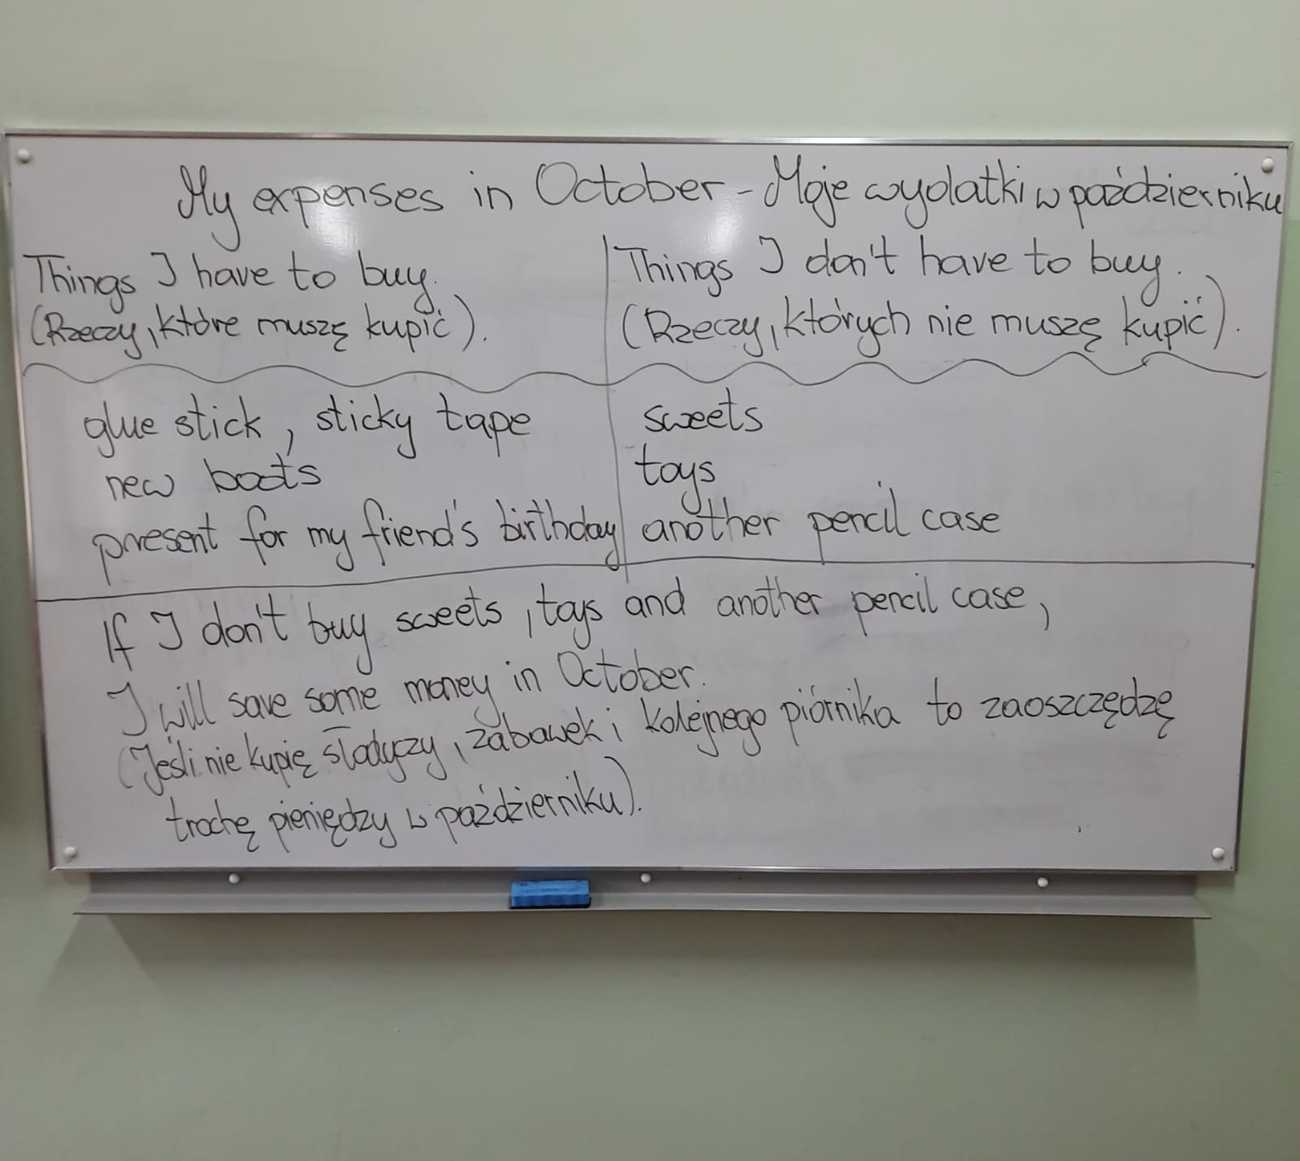 My expenses in October - Moje wydatki w październiku
Things I have to buy.
(Rzeczy, które muszę kupić).
Things I don't have to buy.
(Rzeczy, których nie muszę kupić).
glue stick, sticky tape
new boots
present for my friend's birthday
sweets
toys
another pencil case
If I don't buy sweets, toys and another pencil case,
I will save some money in October.
(Jeśli nie kupię słodyczy, zabawek i kolejnego piórnika to zaoszczędzę
trochę pieniędzy w październiku).